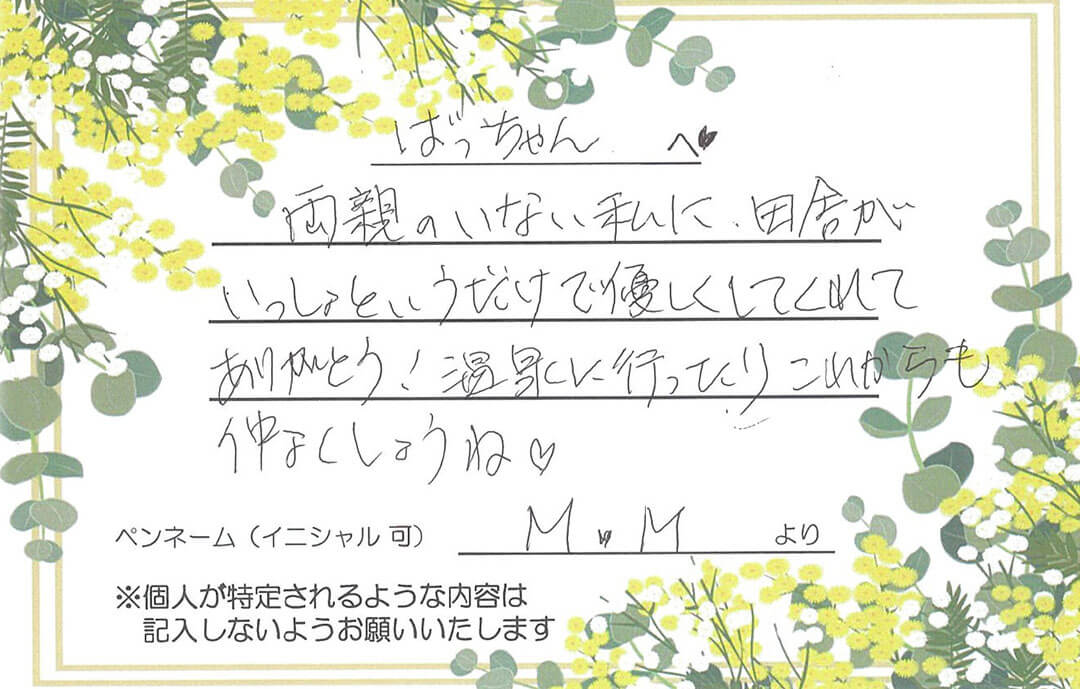 ばっちゃん へ♥
両親のいない私に、田舎が
いっしょというだけで優しくしてくれて
ありがとう!温泉に行ったりこれからも
仲よくしようね♡
ペンネーム(イニシャル可) M♥M より
※個人が特定されるような内容は
記入しないようお願いいたします